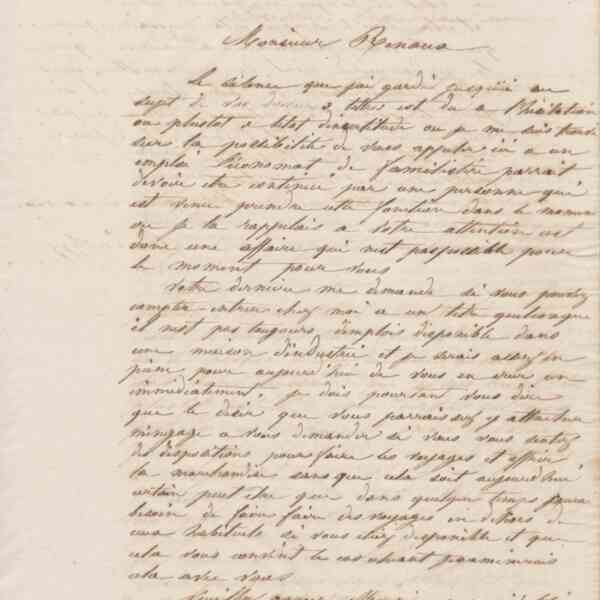 Monsieur Renaud
Le silence que j'ai gardé jusqu'ici au
sujet de vos 2 lettres est du a l'hésitation
ou plustot a l'état d'incertitude ou je me suis trouvé
sur la possibilité de vous appeler ici a un
emploi l'économat du familistère parrait
devoir etre continué par une personne qui
est venue prendre cette fonction dans le moment
ou je la rappelais a votre attention c'est
donc une affaire qui n'est pas possible pour
le moment pour vous
Votre dernière me demande si vous pouvez
compter entrer chez moi a un titre quelconque
il n'est pas toujours d'emplois disponible dans
une maison d'industrie et je serais assez en
peine pour aujourd'hui de vous en créer un
immédiatement, je dois poursant vous dire
que le désir que vous parraissez y attacher
m'engage a vous demander si vous vous sentez
des dispositions pour faire les voyages et offrir
la marchandise sans que cela soit aujourd'hui
certain peut etre que dans quelque temps j'aurai
besoin de faire faire des voyages en dehors de
ceux habituels si vous étiez disponible et que
cela vous convint le cas échéant j'examinerais
cela avec vous
Veuillez agréer Monsieur